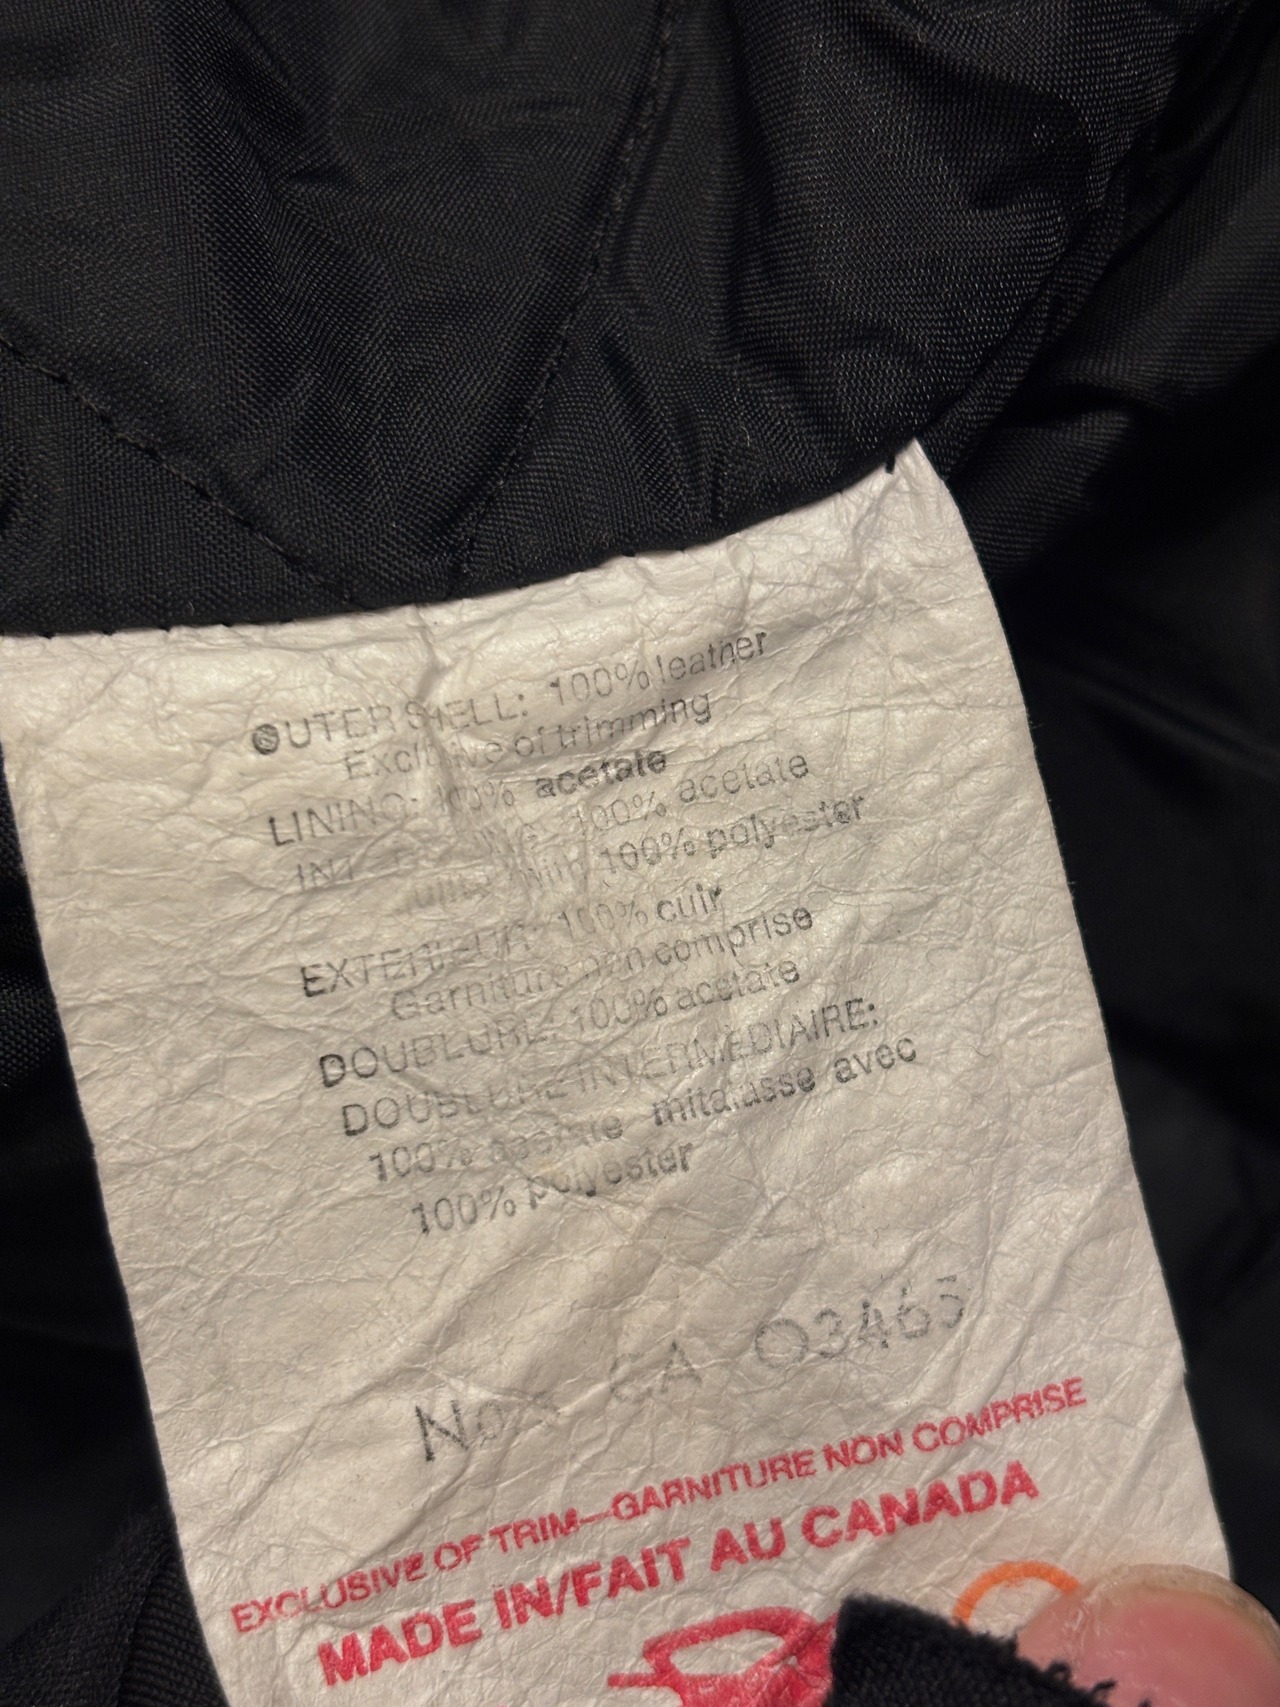 OUTER SHELL: 100% leather
Exclusive of trimming
LINING: 100% acetate
100% acetate
100% polyester
EXTERIEUR: 100% cuir
Garniture non comprise
DOUBLURE: 100% acetate
DOUBLURE INTERMEDIAIRE:
100% acetate mitalasse avec
100% polyester
CA 03465
EXCLUSIVE OF TRIM—GARNITURE NON COMPRISE
MADE IN/FAIT AU CANADA